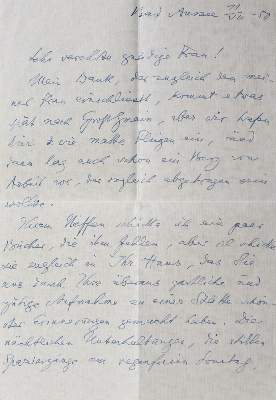 Bad Aussee 11/VIII - 50
Sehr verehrte gnädige Frau!
Mein Dank, der zugleich den mei-
ner Frau einschliesst, kommt etwas
spät nach Großgmain, aber wir trafen
hier wie matte Fliegen ein, und
dann lag auch schon ein Berg von
Arbeit vor, der sogleich abgetragen sein
wollte.
Ihrem Neffen schickte ich ein paar
Bücher, die ihm fehlen, aber ich schickte
sie zugleich in Ihr Haus, das Sie
uns durch Ihre überaus gastliche und
gütige Aufnahme zu einer Stätte schön-
ster Erinnerungen gemacht haben. Die
nächtlichen Unterhaltungen, die stillen
Spaziergänge am regenfreien Sonntag,